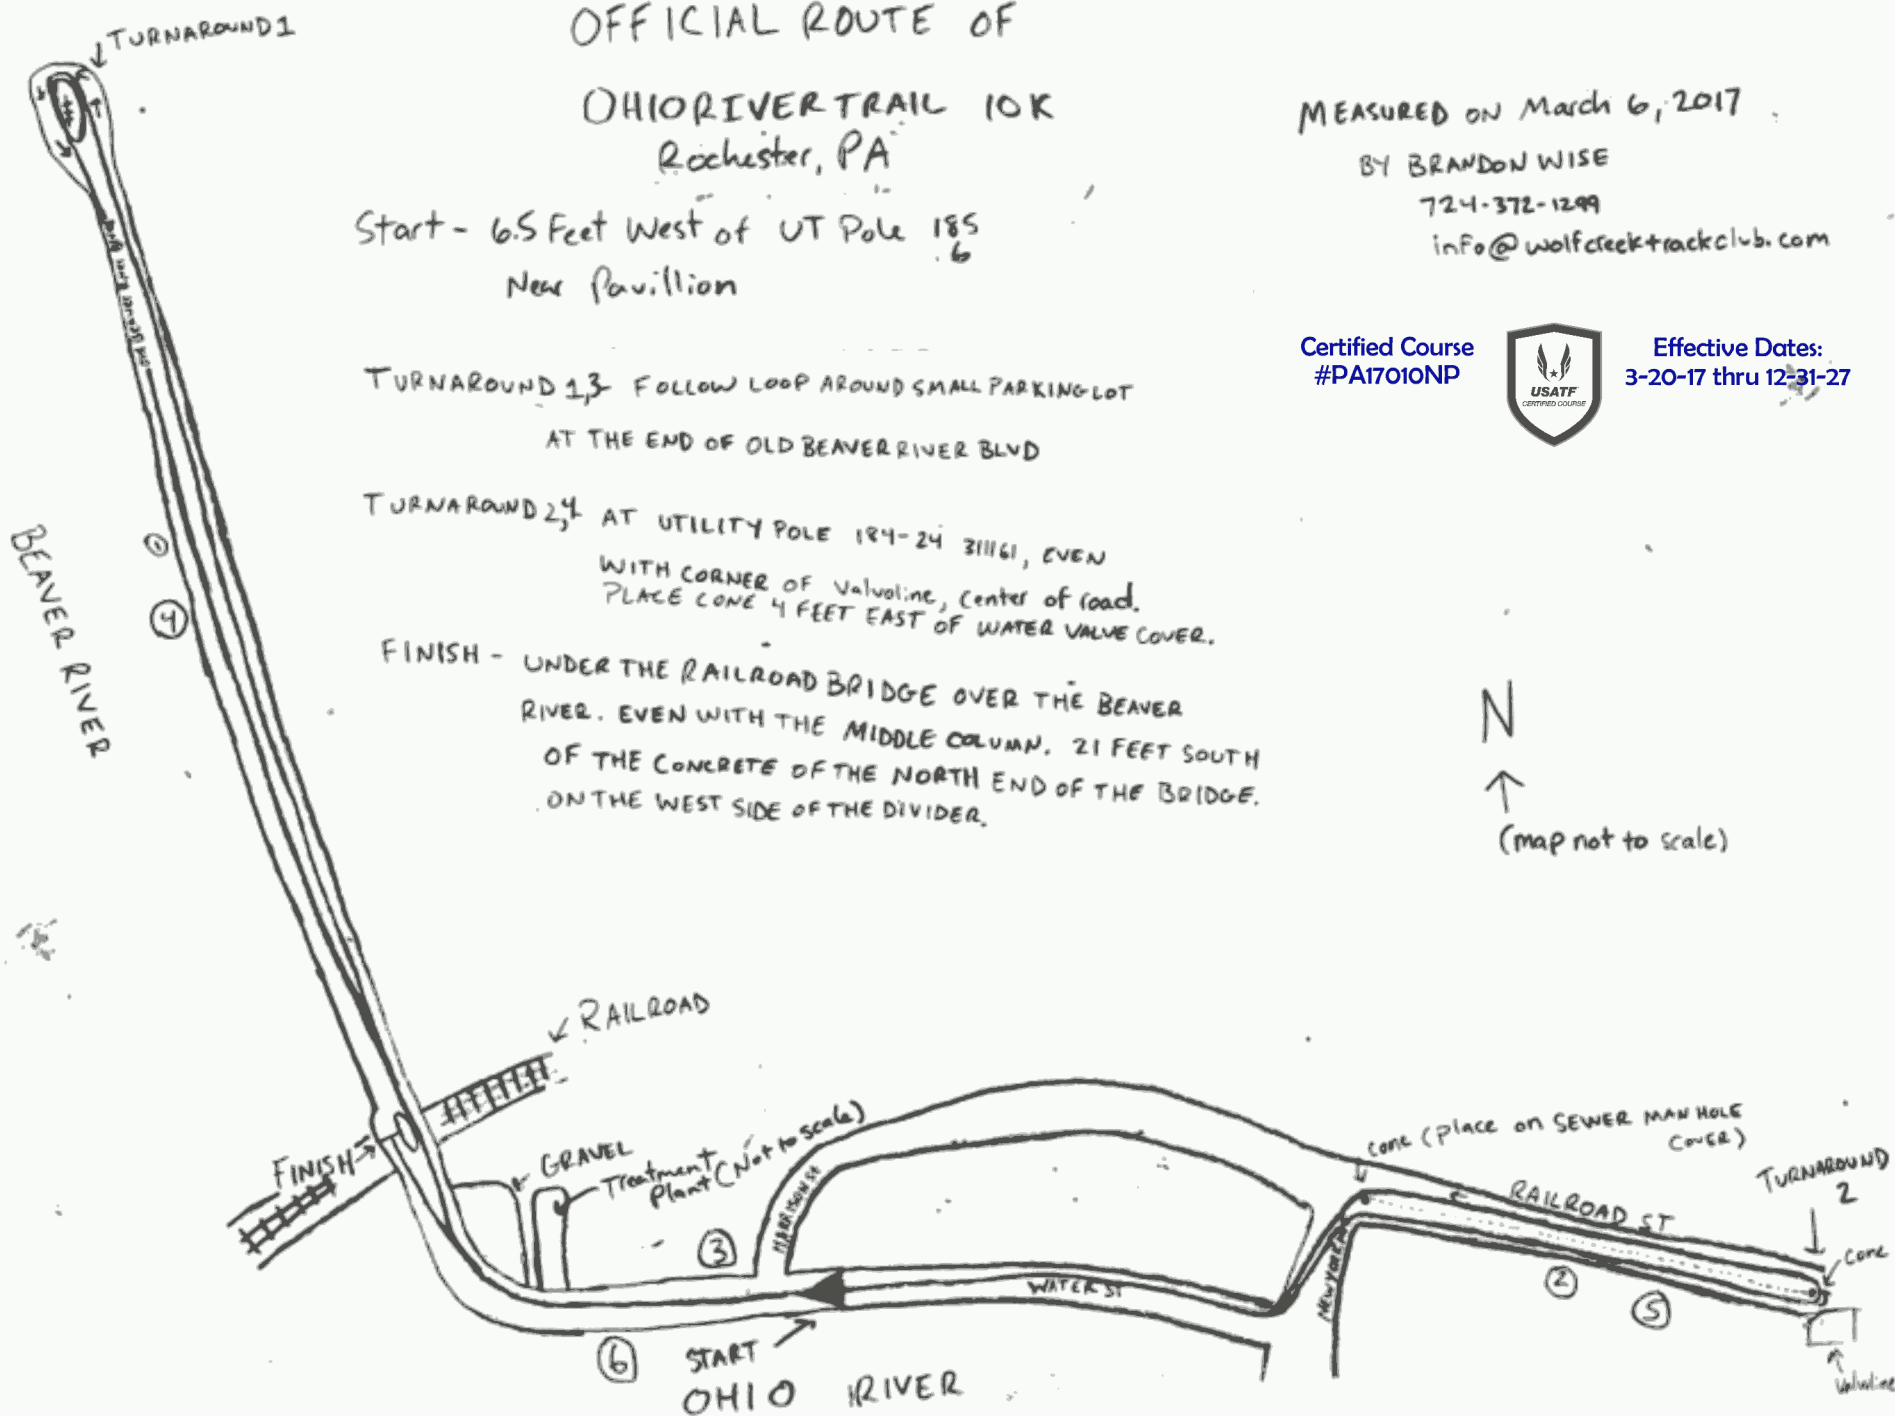 OFFICIAL ROUTE OF
OHIO RIVER TRAIL 10K
Rochester, PA
MEASURED ON March 6, 2017
BY BRANDON WISE
724-372-1299
info@wolfcreektrackclub.com
Start - 6.5 Feet West of UT Pole 185
6
Near Pavillion
Certified Course
#PA17010NP
USATF
CERTIFIED COURSE
Effective Dates:
3-20-17 thru 12-31-27
TURNAROUND 1,3 FOLLOW LOOP AROUND SMALL PARKING LOT
AT THE END OF OLD BEAVER RIVER BLVD
TURNAROUND 2,4 AT UTILITY POLE 184-24 311161, EVEN
WITH CORNER OF Valvoline, Center of road.
PLACE CONE 4 FEET EAST OF WATER VALVE COVER.
FINISH - UNDER THE RAILROAD BRIDGE OVER THE BEAVER
RIVER. EVEN WITH THE MIDDLE COLUMN. 21 FEET SOUTH
OF THE CONCRETE OF THE NORTH END OF THE BRIDGE.
ON THE WEST SIDE OF THE DIVIDER.
N
(map not to scale)
TURNAROUND 1
BEAVER RIVER
4
RAILROAD
FINISH
GRAVEL
Treatment
Plant (Not to scale)
HARRISON ST
3
6
START
OHIO RIVER
WATER ST
NEW YORK
cone (Place on SEWER MANHOLE
COVER)
RAILROAD ST
TURNAROUND
2
Cone
2
5
Valvoline